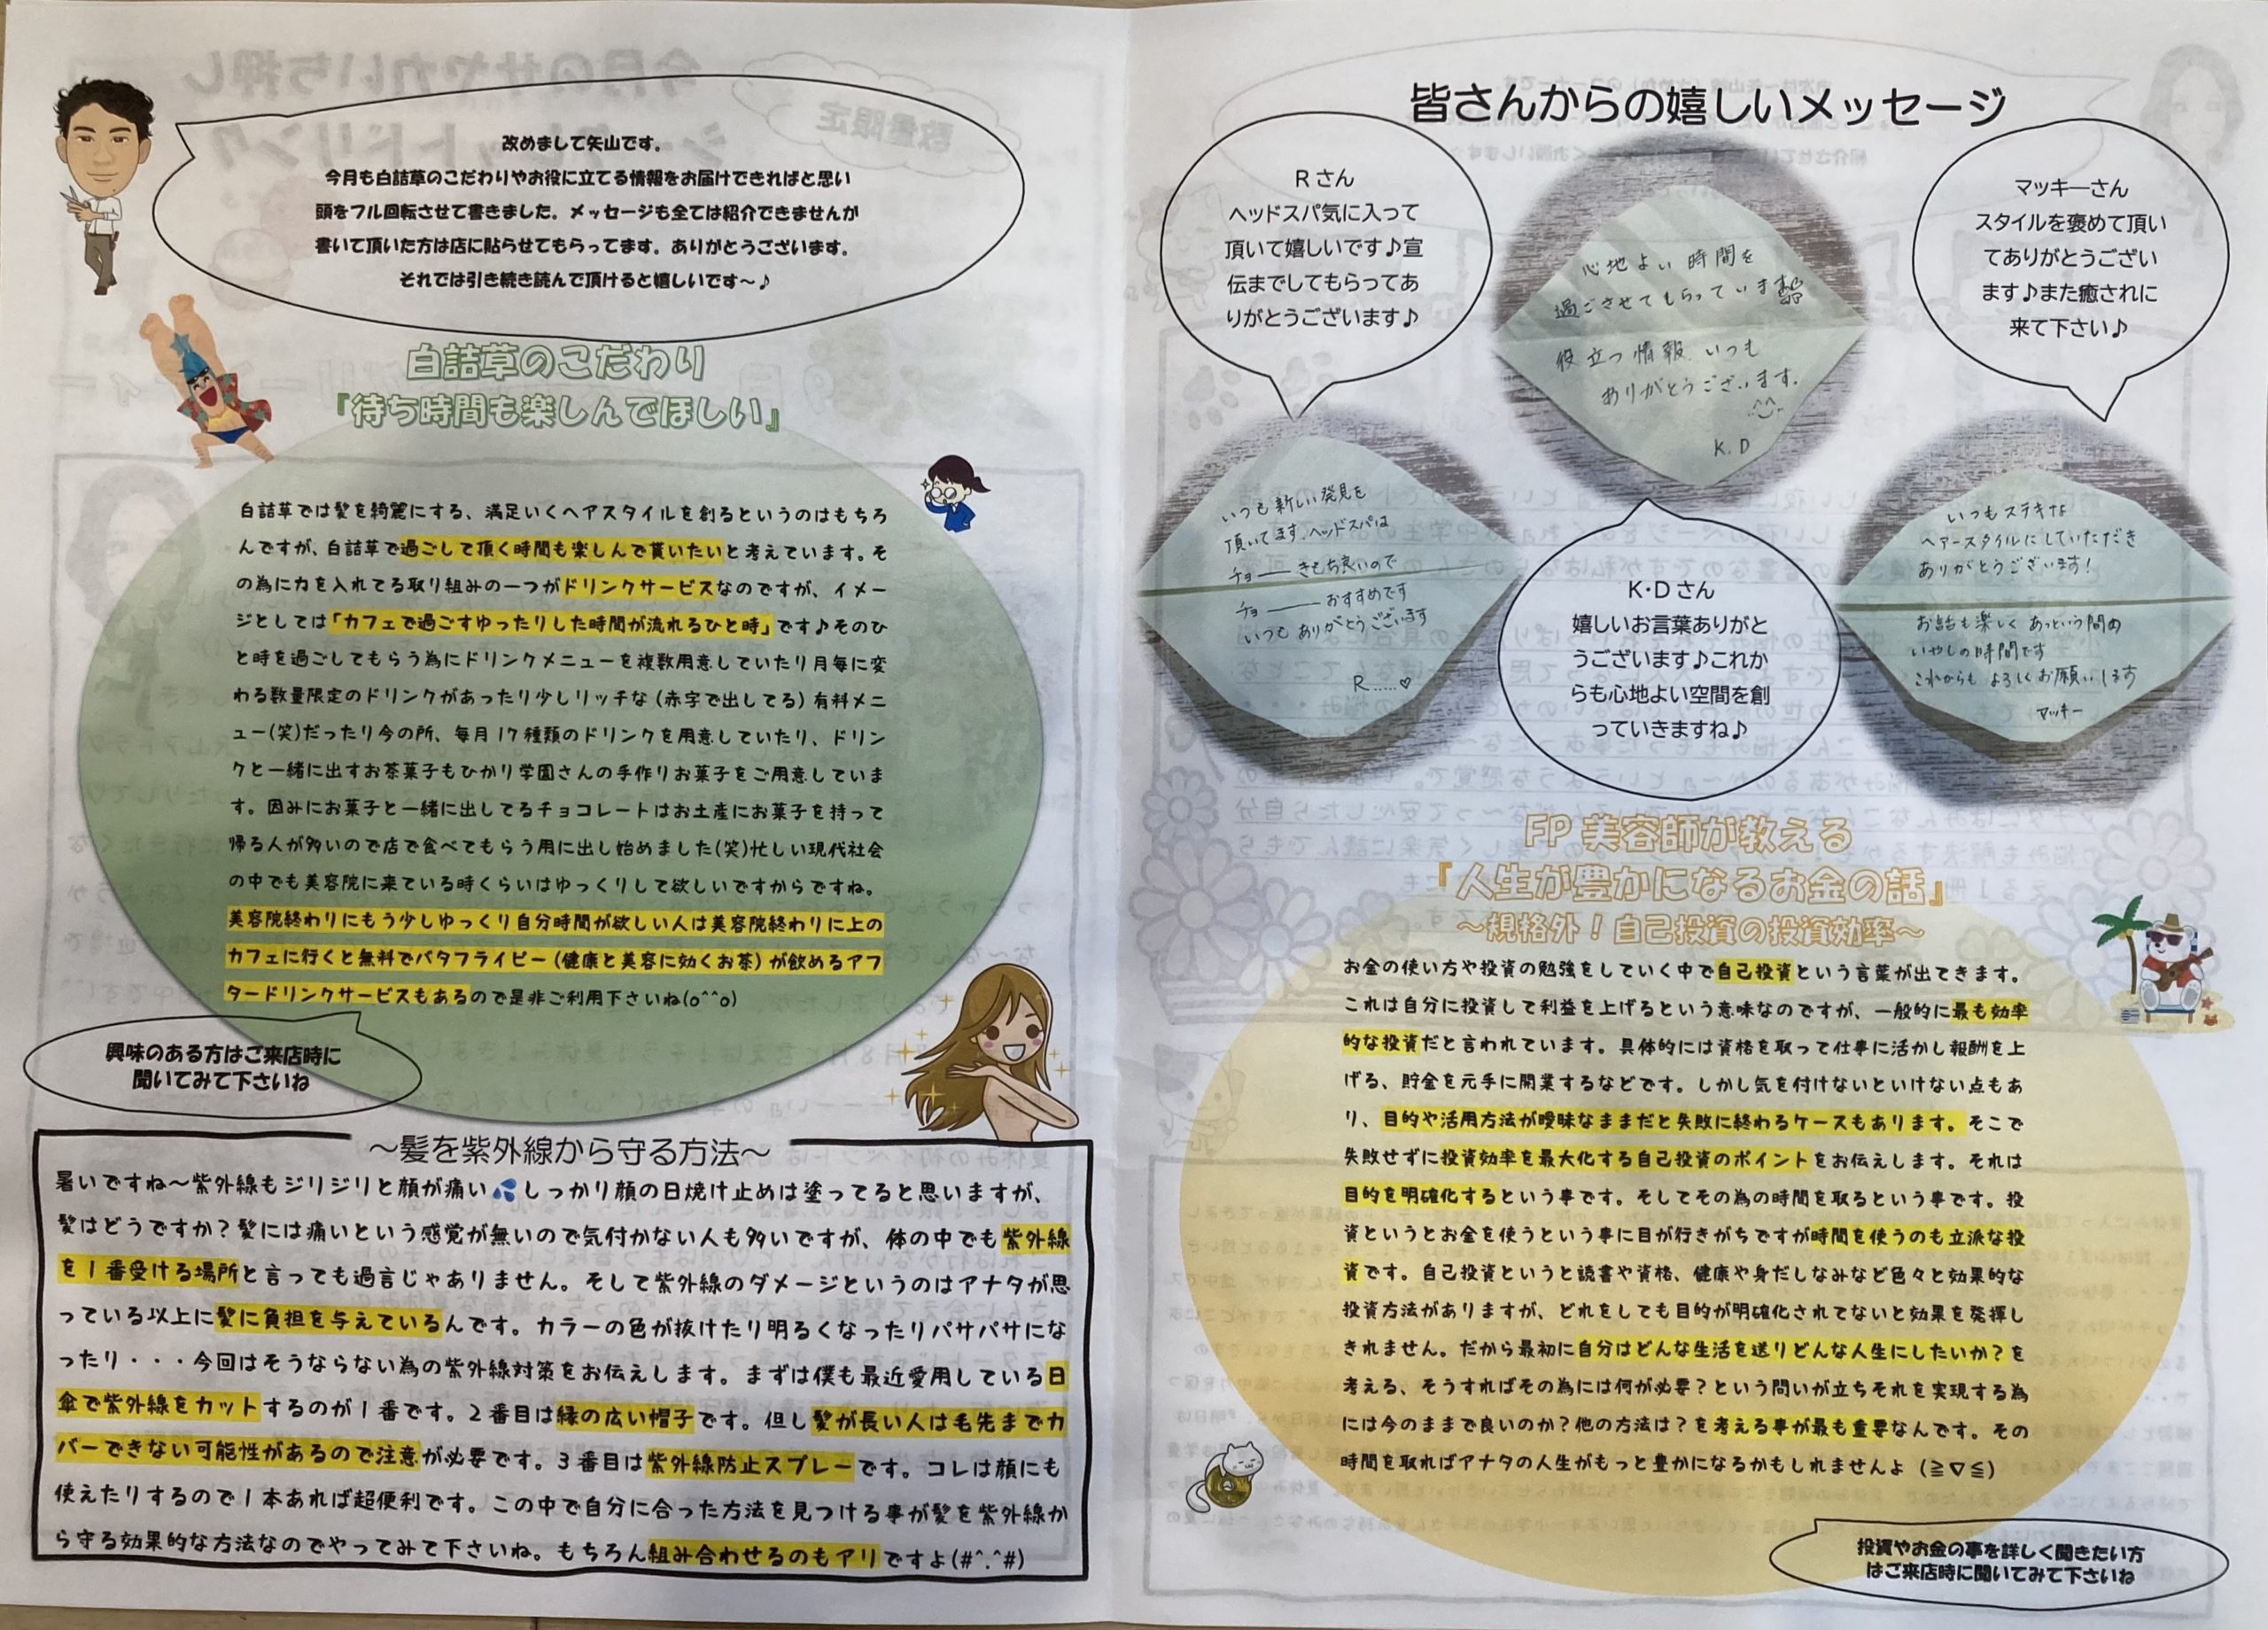 改めまして矢山です。
今月も白詰草のこだわりやお役に立てる情報をお届けできればと思い
頭をフル回転させて書きました。メッセージも全ては紹介できませんが
書いて頂いた方は店に貼らせてもらってます。ありがとうございます。
それでは引き続き読んで頂けると嬉しいです～♪
白詰草のこだわり
『待ち時間も楽しんでほしい』
白詰草では髪を綺麗にする、満足いくヘアスタイルを創るというのはもちろ
んですが、白詰草で過ごして頂く時間も楽しんで貰いたいと考えています。そ
の為に力を入れてる取り組みの一つがドリンクサービスなのですが、イメー
ジとしては「カフェで過ごすゆったりした時間が流れるひと時」です♪そのひ
と時を過ごしてもらう為にドリンクメニューを複数用意していたり月毎に変
わる数量限定のドリンクがあったり少しリッチな（赤字で出してる）有料メニ
ュー(笑)だったり今の所、毎月17種類のドリンクを用意していたり、ドリン
クと一緒に出すお茶菓子もひかり学園さんの手作りお菓子をご用意していま
す。因みにお菓子と一緒に出してるチョコレートはお土産にお菓子を持って
帰る人が多いので店で食べてもらう用に出し始めました(笑)忙しい現代社会
の中でも美容院に来ている時くらいはゆっくりして欲しいですからですね。
美容院終わりにもう少しゆっくり自分時間が欲しい人は美容院終わりに上の
カフェに行くと無料でバタフライピー（健康と美容に効くお茶）が飲めるアフ
タードリンクサービスもあるので是非ご利用下さいね(o^^o)
興味のある方はご来店時に
聞いてみて下さいね
～髪を紫外線から守る方法～
暑いですね～紫外線もジリジリと顔が痛い💦しっかり顔の日焼け止めは塗ってると思いますが、
髪はどうですか？髪には痛いという感覚が無いので気付かない人も多いですが、体の中でも紫外線
を1番受ける場所と言っても過言じゃありません。そして紫外線のダメージというのはアナタが思
っている以上に髪に負担を与えているんです。カラーの色が抜けたり明るくなったりパサパサにな
ったり・・・今回はそうならない為の紫外線対策をお伝えします。まずは僕も最近愛用している日
傘で紫外線をカットするのが1番です。2番目は縁の広い帽子です。但し髪が長い人は毛先までカ
バーできない可能性があるので注意が必要です。3番目は紫外線防止スプレーです。コレは顔にも
使えたりするので1本あれば超便利です。この中で自分に合った方法を見つける事が髪を紫外線か
ら守る効果的な方法なのでやってみて下さいね。もちろん組み合わせるのもアリですよ(#^.^#)
皆さんからの嬉しいメッセージ
Rさん
ヘッドスパ気に入って
頂いて嬉しいです♪宣
伝までしてもらってあ
りがとうございます♪
心地よい時間を
過ごさせてもらっています
役立つ情報、いつも
ありがとうございます。
K.D
マッキーさん
スタイルを褒めて頂い
てありがとうござい
ます♪また癒されに
来て下さい♪
いつも新しい発見を
頂いてます。ヘッドスパは
チョー――きもち良いので
チョ―――おすすめです
いつもありがとうございます
R.....♡
K・Dさん
嬉しいお言葉ありがと
うございます♪これか
らも心地よい空間を創
っていきますね♪
いつもステキな
ヘアースタイルにしていただき
ありがとうございます!
お話も楽しくあっという間の
いやしの時間です
これからもよろしくお願いします
マッキー
FP美容師が教える
『人生が豊かになるお金の話』
～規格外！自己投資の投資効率～
お金の使い方や投資の勉強をしていく中で自己投資という言葉が出てきます。
これは自分に投資して利益を上げるという意味なのですが、一般的に最も効率
的な投資だと言われています。具体的には資格を取って仕事に活かし報酬を上
げる、貯金を元手に開業するなどです。しかし気を付けないといけない点もあ
り、目的や活用方法が曖昧なままだと失敗に終わるケースもあります。そこで
失敗せずに投資効率を最大化する自己投資のポイントをお伝えします。それは
目的を明確化するという事です。そしてその為の時間を取るという事です。投
資というとお金を使うという事に目が行きがちですが時間を使うのも立派な投
資です。自己投資というと読書や資格、健康や身だしなみなど色々と効果的な
投資方法がありますが、どれをしても目的が明確化されてないと効果を発揮し
きれません。だから最初に自分はどんな生活を送りどんな人生にしたいか？を
考える、そうすればその為には何が必要？という問いが立ちそれを実現する為
には今のままで良いのか？他の方法は？を考える事が最も重要なんです。その
時間を取ればアナタの人生がもっと豊かになるかもしれませんよ（≧∇≦）
投資やお金の事を詳しく聞きたい方
はご来店時に聞いてみて下さいね